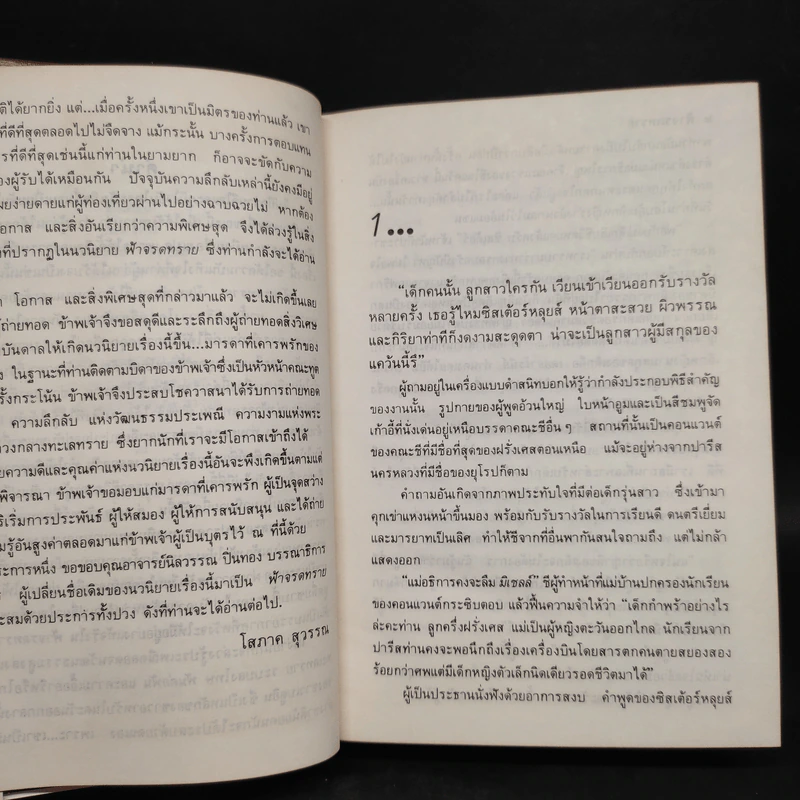 ติได้ยากยิ่ง แต่...เมื่อครั้งหนึ่งเขาเป็นมิตรของท่านแล้ว เขา
ที่ดีที่สุดตลอดไปไม่จืดจาง แม้กระนั้น บางครั้งการตอบแทน
รที่ดีที่สุดเช่นนี้แก่ท่านในยามยาก ก็อาจจะขัดกับความ
องผู้รับได้เหมือนกัน ปัจจุบันความลึกลับเหล่านี้ยังคงมีอยู่
ผยง่ายดายแก่ผู้ท่องเที่ยวผ่านไปอย่างฉาบฉวยไม่ หากต้อง
อกาส และสิ่งอันเรียกว่าความพิเศษสุด จึงได้ล่วงรู้ในสิ่ง
งที่ปรากฏในนวนิยาย ฟ้าจรดทราย ซึ่งท่านกำลังจะได้อ่าน
า โอกาส และสิ่งพิเศษสุดที่กล่าวมาแล้ว จะไม่เกิดขึ้นเลย
ถ่ายทอด ข้าพเจ้าจึงขอสดุดีและระลึกถึงผู้ถ่ายทอดสิ่งวิเศษ
บันดาลให้เกิดนวนิยายเรื่องนี้ขึ้น...มารดาที่เคารพรักของ
ง ในฐานะที่ท่านติดตามบิดาของข้าพเจ้าซึ่งเป็นหัวหน้าคณะทูต
รั้งกระโน้น ข้าพเจ้าจึงประสบโชควาสนาได้รับการถ่ายทอด
ความลึกลับ แห่งวัฒนธรรมประเพณี ความงามแห่งพระ
วงกลางทะเลทราย ซึ่งยากนักที่เราจะมีโอกาสเข้าถึงได้
ยความดีและคุณค่าแห่งนวนิยายเรื่องนี้อันจะพึงเกิดขึ้นตามแต่
พิจารณา ข้าพเจ้าขอมอบแก่มารดาที่เคารพรัก ผู้เป็นจุดสว่าง
ริเริ่มการประพันธ์ ผู้ให้สมอง ผู้ให้การสนับสนุน และได้ถ่าย
มรู้อันสูงค่าตลอดมาแก่ข้าพเจ้าผู้เป็นบุตรไว้ ณ ที่นี้ด้วย
ะการหนึ่ง ขอขอบคุณอาจารย์นิลวรรณ ปิ่นทอง บรรณาธิการ
ผู้เปลี่ยนชื่อเดิมของนวนิยายเรื่องนี้มาเป็น ฟ้าจรดทราย
ะสมด้วยประการทั้งปวง ดังที่ท่านจะได้อ่านต่อไป.
โสภาค สุวรรณ
1...
“เด็กคนนั้น ลูกสาวใครกัน เวียนเข้าเวียนออกรับรางวัล
หลายครั้ง เธอรู้ไหมซิสเต้อร์หลุยส์ หน้าตาสะสวย ผิวพรรณ
และกิริยาท่าทีก็งดงามสะดุดตา น่าจะเป็นลูกสาวผู้มีสกุลของ
แคว้นนี้รึ”
ผู้ถามอยู่ในเครื่องแบบดำสนิทบอกให้รู้ว่ากำลังประกอบพิธีสำคัญ
ของงานนั้น รูปกายของผู้พูดอ้วนใหญ่ ใบหน้าอูมและเป็นสีชมพูจัด
เก้าอี้ที่นั่งเด่นอยู่เหนือบรรดาคณะชีอื่น ๆ สถานที่นั้นเป็นคอนแวนต์
ของคณะชีที่มีชื่อที่สุดของฝรั่งเศสตอนเหนือ แม้จะอยู่ห่างจากปารีส
นครหลวงที่มีชื่อของยุโรปก็ตาม
คำถามอันเกิดจากภาพประทับใจที่มีต่อเด็กรุ่นสาว ซึ่งเข้ามา
คุกเข่าแหงนหน้าขึ้นมอง พร้อมกับรับรางวัลในการเรียนดี ดนตรีเยี่ยม
และมารยาทเป็นเลิศ ทำให้ชีจากที่อื่นพากันสนใจถามถึง แต่ไม่กล้า
แสดงออก
“แม่อธิการคงจะลืม มิเชลล์” ชีผู้ทำหน้าที่แม่บ้านปกครองนักเรียน
ของคอนแวนต์กระซิบตอบ แล้วฟื้นความจำให้ว่า “เด็กกำพร้าอย่างไร
ล่ะคะท่าน ลูกครึ่งฝรั่งเศส แม่เป็นผู้หญิงตะวันออกไกล นักเรียนจาก
ปารีสท่านคงจะพอนึกถึงเรื่องเครื่องบินโดยสารตกคนตายสยองสอง
ร้อยกว่าศพแต่มีเด็กหญิงตัวเล็กนิดเดียวรอดชีวิตมาได้”
ผู้เป็นประธานนั่งฟังด้วยอาการสงบ คำพูดของซิสเต้อร์หลุยส์